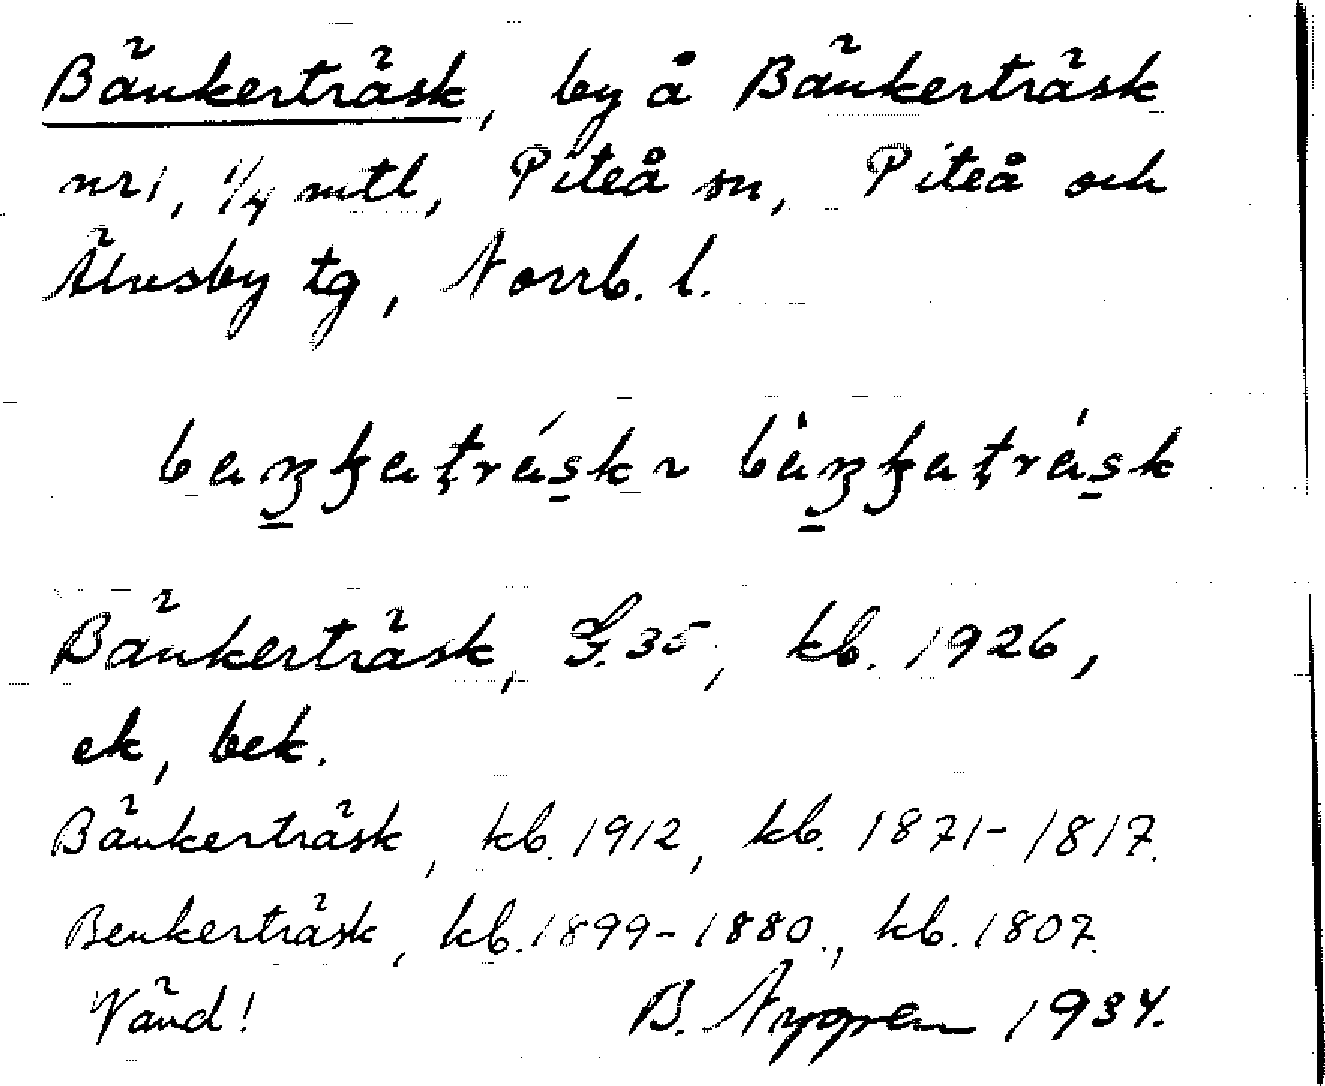 Bänkerträsk, by å Bänkerträsk
nr 1, 1/4 mtl, Piteå sn, Piteå och
Älvsby tg, Norrb. l.
Bänkerträsk, G.35, kb. 1926,
ek, bek.
Bänkerträsk, kb. 1912, kb. 1871-1817.
Benkerträsk, kb. 1899-1880., kb. 1807.
Vänd! B. Nygren 1934.